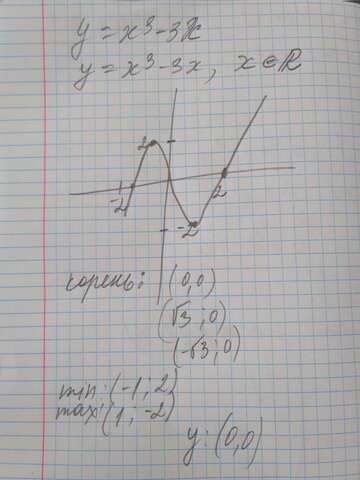 y = x³ - 3x
y = x³ - 3x, x ∈ ℝ
2
-2
2
-2
корень: (0,0)
(√3; 0)
(-√3; 0)
min: (-1; 2)
max: (1; -2)
y: (0,0)